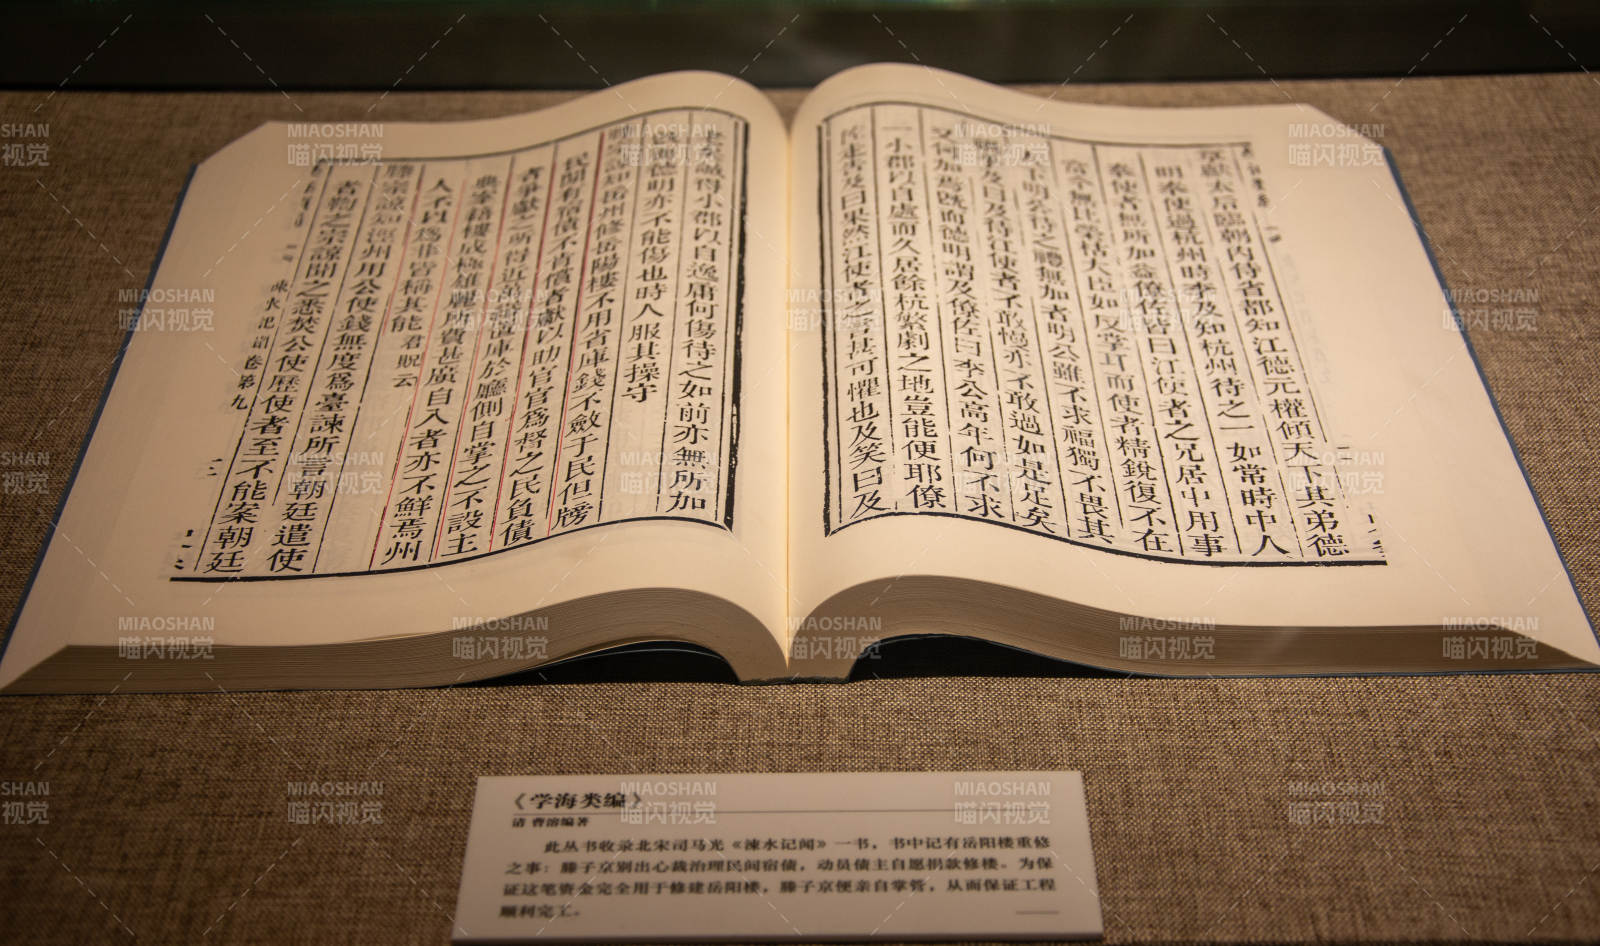 章獻太后臨朝內侍省都知江德元權傾天下其弟德
明奉使過杭州時李及知杭州待之一如常時中人
奉使者無所加益僚佐皆曰江使者之兄居中用事
當今無比榮枯大臣如反掌耳而使者精銳復不在
人下明公待之禮無加者明公雖不求福獨不畏其
禍乎及曰及待江使者不敢慢亦不敢過如是足矣
又何加焉既而德明謂及僚佐曰李公高年何不求
一小郡以自處而久居餘杭繁劇之地豈能便耶僚
佐走告及曰果然江使者之言甚可懼也及笑曰及
老矣誠得小郡以自逸庸何傷待之如前亦無所加
德明亦不能傷也時人服其操守
滕宗諒知岳州修岳陽樓不用省庫錢不斂于民但牓
民間有宿債不肯償者獻以助官官為督之民負債
者爭獻之所得近萬緡置庫於廳側自掌之不設主
典案籍樓成極雄麗所費甚廣自入者亦不鮮焉州
人不以為非皆稱其能君貺云
滕宗諒知涇州用公使錢無度為臺諫所言朝廷遣使
者鞫之宗諒聞之悉焚公使歷使者至不能案朝廷
涑水記聞卷第九
三
《学海类编》
清 曹溶编著
此丛书收录北宋司马光《涑水记闻》一书，书中记有岳阳楼重修
之事：滕子京别出心裁治理民间宿债，动员债主自愿捐款修楼。为保
证这笔资金完全用于修建岳阳楼，滕子京便亲自掌管，从而保证工程
顺利完工。
MIAOSHAN
喵闪视觉